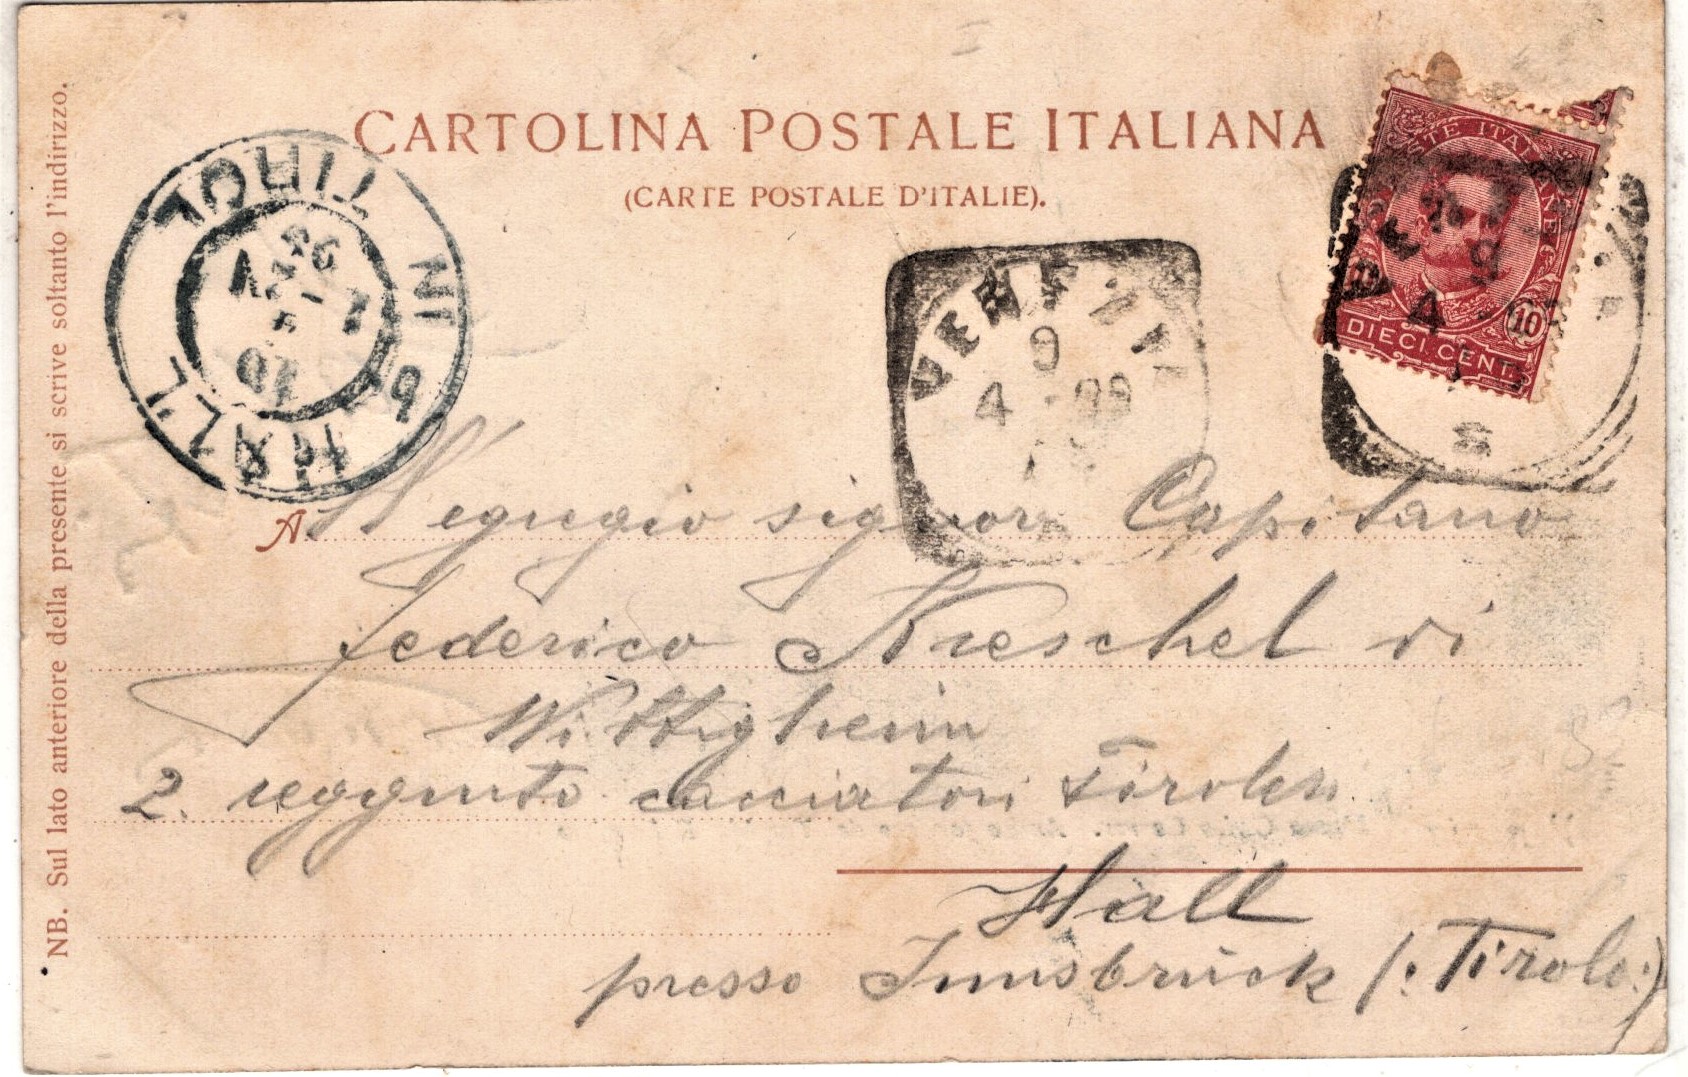 CARTOLINA POSTALE ITALIANA
(CARTE POSTALE D'ITALIE).
NB. Sul lato anteriore della presente si scrive soltanto l'indirizzo.
HALL IN TIROL
10
98
VENEZIA
9
4-98
DIECI CENT.
10
All egregio signor Capitano
Federico Kreschel di
Wittigheim
2. reggimto cacciatori Tirolesi
Hall
presso Innsbruck (: Tirolo :)